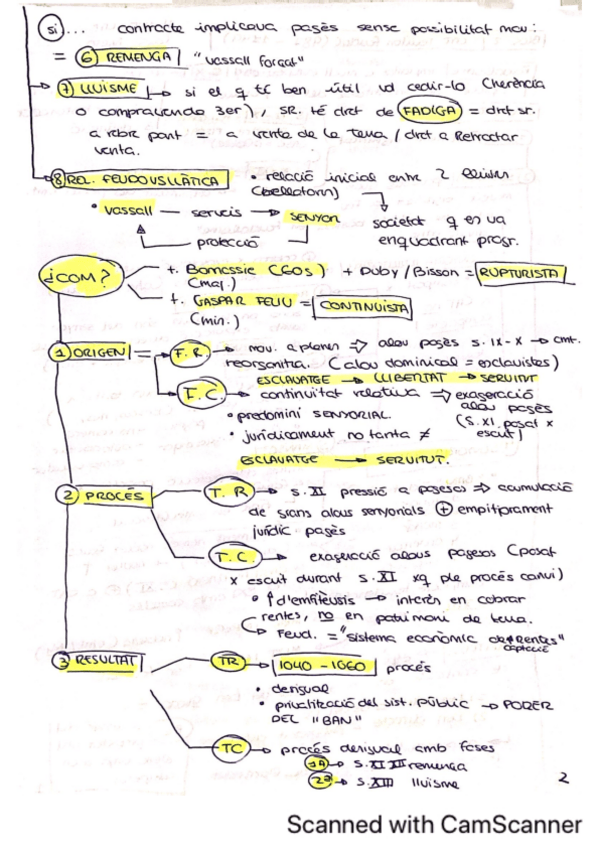 si... contracte implicava pagès sense possibilitat mov:
= ⑥ REMENÇA "vassall forçat"
⑦ LLUÏSME → si el q té ben útil vol cedir-lo (herència
o compravenda 3er), SR. té dret de FADIGA = dret sr.
a rebre part = a venta de la terra / dret a Retractar
venta.
⑧ REL. FEUDOVSLLÀTICA • relació inicial entre 2 lliures
(bellatorin)
• vassall — serveis → SENYOR
protecció
societat q en va
enquadrant progr.
¿COM?
t. Bonnassie (60s) + Duby / Bisson = RUPTURISTA
(maj.)
t. GASPAR FELIU = CONTINUISTA
(min.)
① ORIGEN = T.R. → nov. aplenen ⇒ alou pagès s. IX-X → cmt.
reorganitza. (alou dominical = esclavistes)
ESCLAVATGE → LLIBERTAT → SERVITUT
T.C. → continuïtat relativa ⇒ exageració
alou pagès
(s. XI posat x
escrit)
• predomini SENYORIAL
• jurídicament no tanta ≠
ESCLAVATGE → SERVITUT.
② PROCÉS T. R → s. XI pressió a pagesos ⇒ acumulació
de grans alous senyorials ⊕ empitjorament
jurídic pagès
T. C. → exageració alous pagesos (posat
x escrit durant s. XI xq ple procés canvi)
• ↑ d'emfiteusis → interès en cobrar
rentes, no en patrimoni de terra.
→ Feud. = "sistema econòmic de Rentes"
captació
③ RESULTAT TR → 1040 - 1060 procés
• desigual
• privatització del sist. públic → PODER
DEL "BAN"
TC → procés desigual amb fases
1a → s. XI XII remença
2a → s. XIII lluïsme
2
Scanned with CamScanner